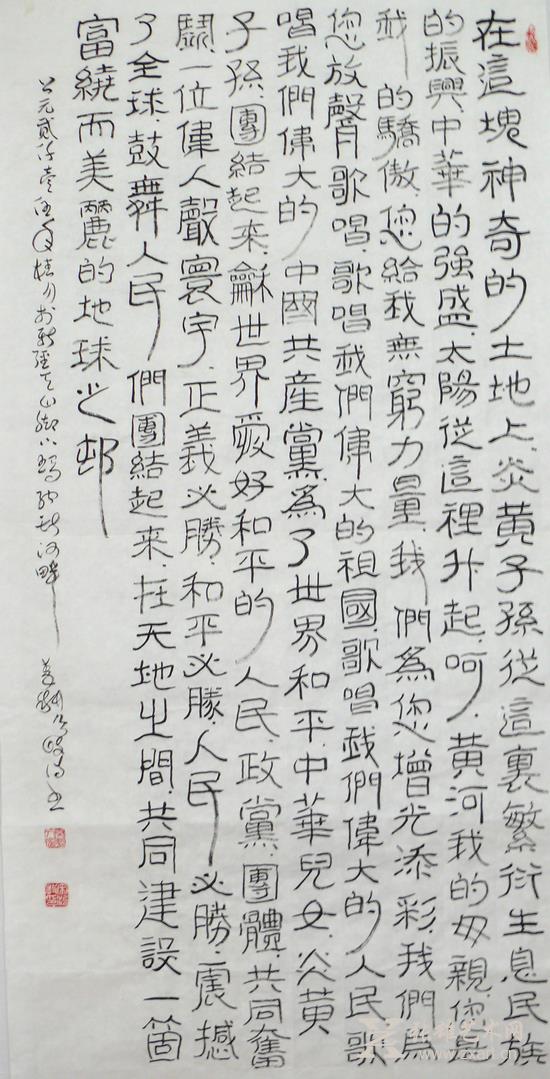 在這塊神奇的土地上,炎黃子孫從這裏繁衍生息,民族
的振興,中華的強盛,太陽從這裡升起,呵,黃河我的母親,您是
我的驕傲,您給我無窮力量,我們為您增光添彩,我們為
您放聲歌唱,歌唱我們偉大的祖國,歌唱我們偉大的人民,歌
唱我們偉大的中國共産黨,為了世界和平,中華兒女,炎黃
子孫,團結起來,龢世界愛好和平的人民,政黨,團體,共同奮
鬭,一位偉人聲寰宇,正義必勝,和平必勝,人民必勝,震撼
了全球,鼓舞人民們團結起來,在天地之間,共同建設一箇
富繞而美麗的地球之邨
公元貳仟壹